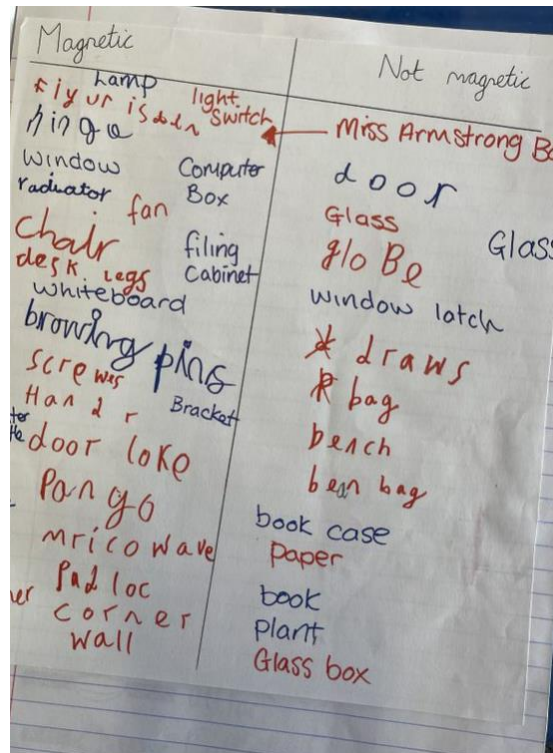 Magnetic
Lamp
light
Switch
hinge
window
Computer
Box
raduator
fan
Chair
filing
Cabinet
desk legs
whiteboard
browing pins
screws
Bracket
door loke
Pango
mricowave
Padloc
corner
wall
Not magnetic
Miss Armstrong
door
Glass
Glass
gloBe
window latch
draws
bag
bench
bean bag
book case
paper
book
Plant
Glass box